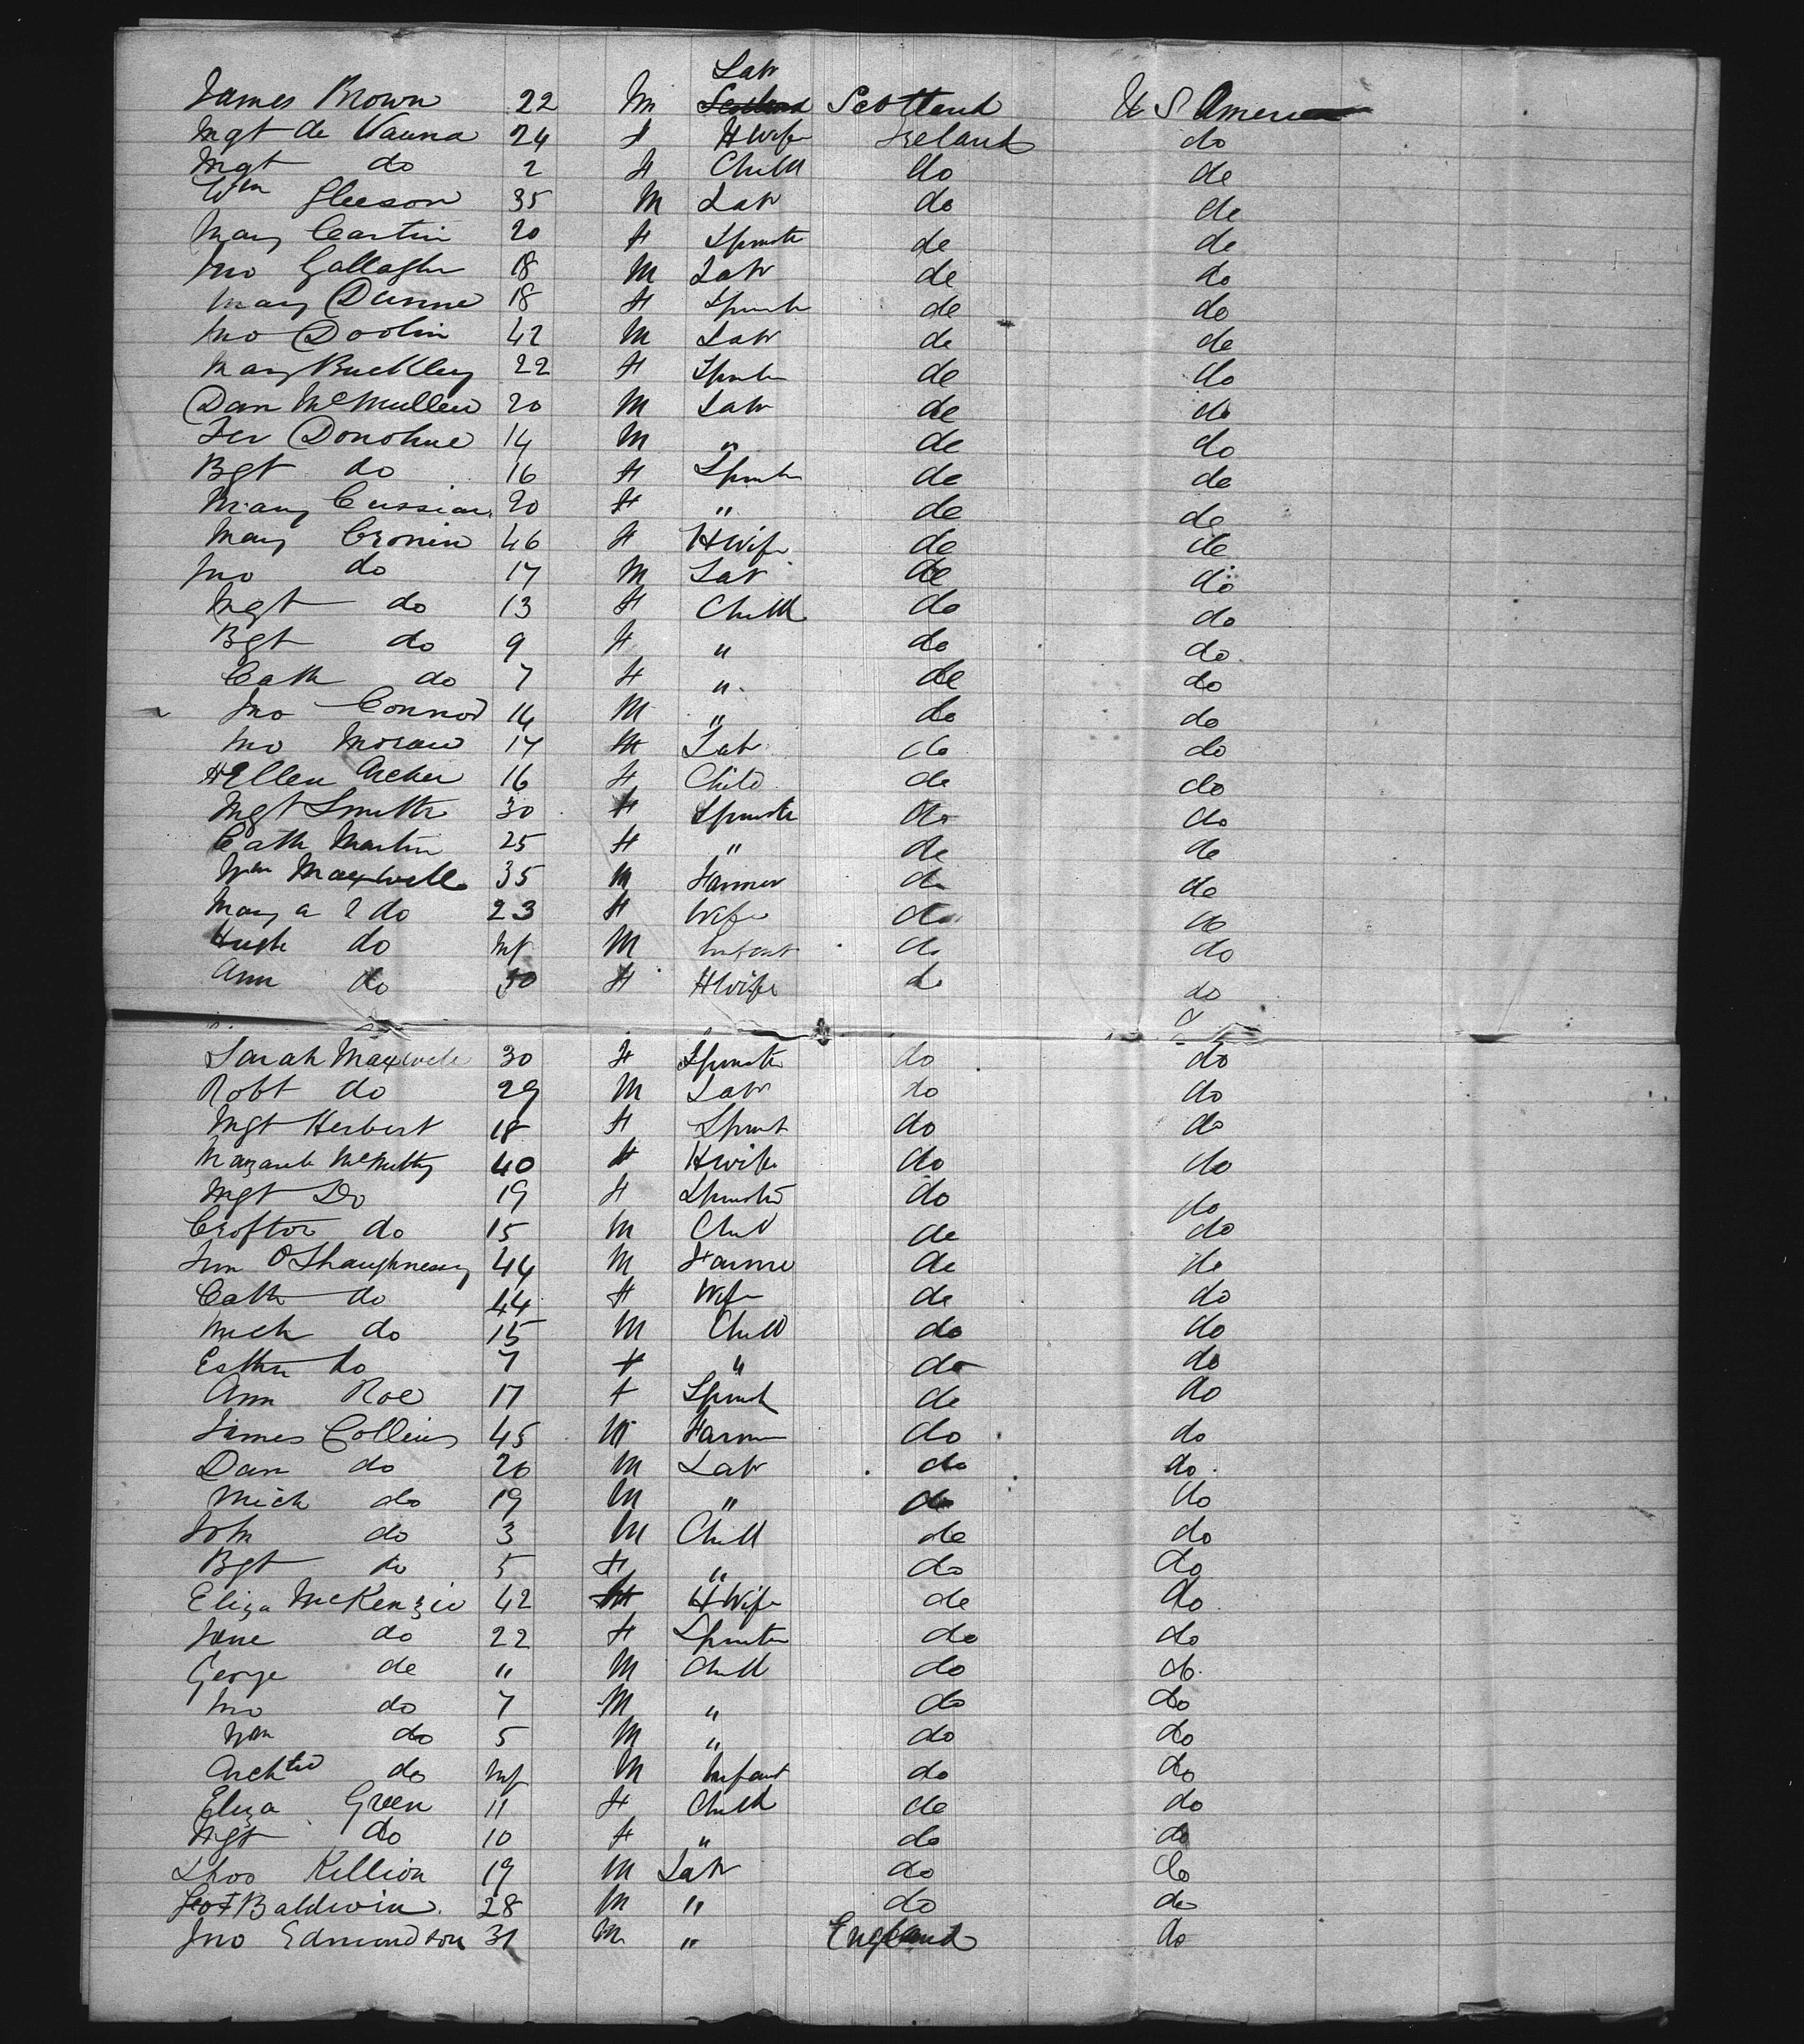 James Brown 22 M Labr Scotland U S America
Mgt de Vauna 24 F H Wife Ireland do
Mgt do 2 F Child do do
Wm Gleeson 35 M Labr do do
Mary Cartin 20 F Spinster do do
Jno Gallagher 18 M Labr do do
Mary Dunne 18 F Spinster do do
Jno Doolin 42 M Labr do do
Mary Buckley 22 F Spinster do do
Dan McMullen 20 M Labr do do
Jer Donohue 14 M " do do
Bgt do 16 F Spinster do do
Mary Cussian 20 F " do do
Mary Cronin 46 F H Wife do do
Jno do 17 M Labr do do
Mgt do 13 F Child do do
Bgt do 9 F " do do
Cath do 7 F " do do
Jno Connor 14 M " do do
Jno Moran 17 M Labr do do
Ellen Archer 16 F Child do do
Mgt Smith 30 F Spinster do do
Cath Martin 25 F " do do
Wm Maxwell 35 M Farmer do do
Mary a do 23 F Wife do do
Hugh do Inf M Infant do do
Ann do 30 F H Wife do do
Sarah Maxwell 30 F Spinster do do
Robt do 29 M Labr do do
Mgt Herbert 18 F Spinst do do
Margaret McNulty 40 F H wife do do
Mgt Do 19 F Spinster do do
Crofton do 15 M Child do do
Jno O'Shaughnessy 44 M Farmer do do
Cath do 44 F Wife do do
Mich do 15 M Child do do
Esther do 7 F " do do
Ann Roe 17 F Spinst do do
James Collins 45 M Farmer do do
Dan do 20 M Labr do do
Mich do 19 M " do do
John do 3 M Child do do
Bgt do 5 F " do do
Eliza McKenzie 42 F H Wife do do
Jane do 22 F Spinster do do
George do " M Child do do
Jno do 7 M " do do
Wm do 5 M " do do
Archtd do Inf M Infant do do
Eliza Green 11 F Child do do
Mgt do 10 F " do do
Thos Killion 19 M Labr do do
Baldwin 28 M " do do
Jno Edmundson 31 M " England do